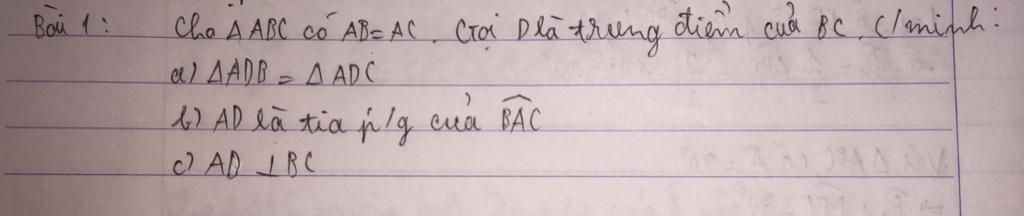 Bài 1: Cho ΔABC có AB=AC. Gọi D là trung điểm của BC. C/minh:
a) ΔADB = ΔADC
b) AD là tia p/g của BAC
c) AD ⊥ BC